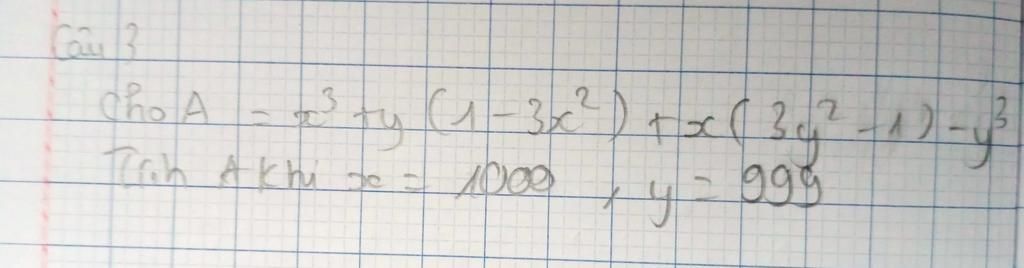 Câu 3
Cho A = x³ + y (1 - 3x²) + x (3y² - 1) - y³
Tính A khi x = 1000, y = 999